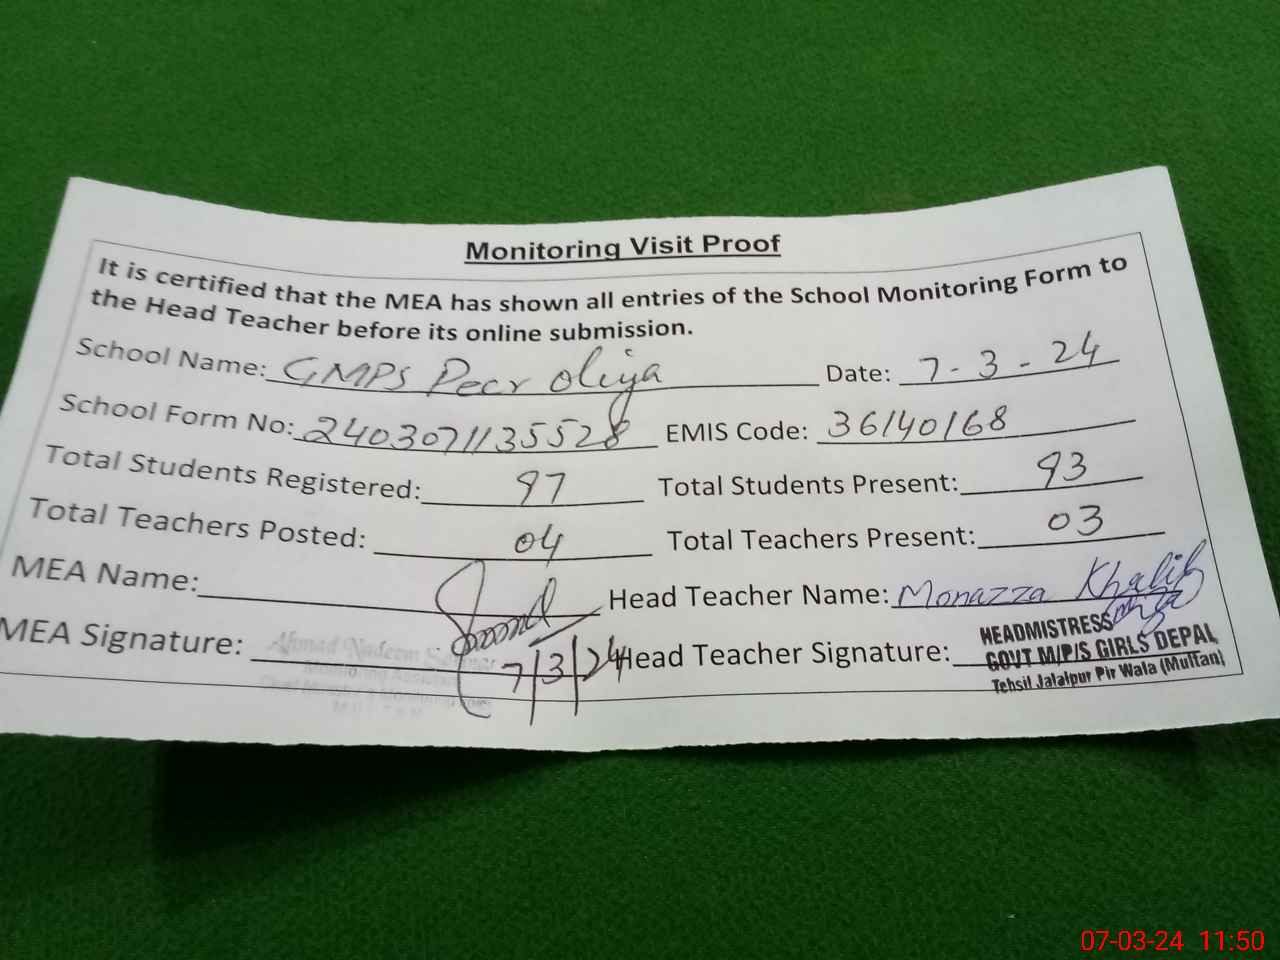 Monitoring Visit Proof
It is certified that the MEA has shown all entries of the School Monitoring Form to
the Head Teacher before its online submission.
School Name: GMPS Peer oliya Date: 7-3-24
School Form No: 2403071135528 EMIS Code: 36140168
Total Students Registered: 97 Total Students Present: 93
Total Teachers Posted: 04 Total Teachers Present: 03
MEA Name: Head Teacher Name: Monazza Khalil
MEA Signature: 7/3/24 Head Teacher Signature:
Ahmad Nadeem
Monitoring Assistant
HEADMISTRESS
GOVT M/P/S GIRLS DEPAL
Tehsil Jalalpur Pir Wala (Multan)
07-03-24 11:50